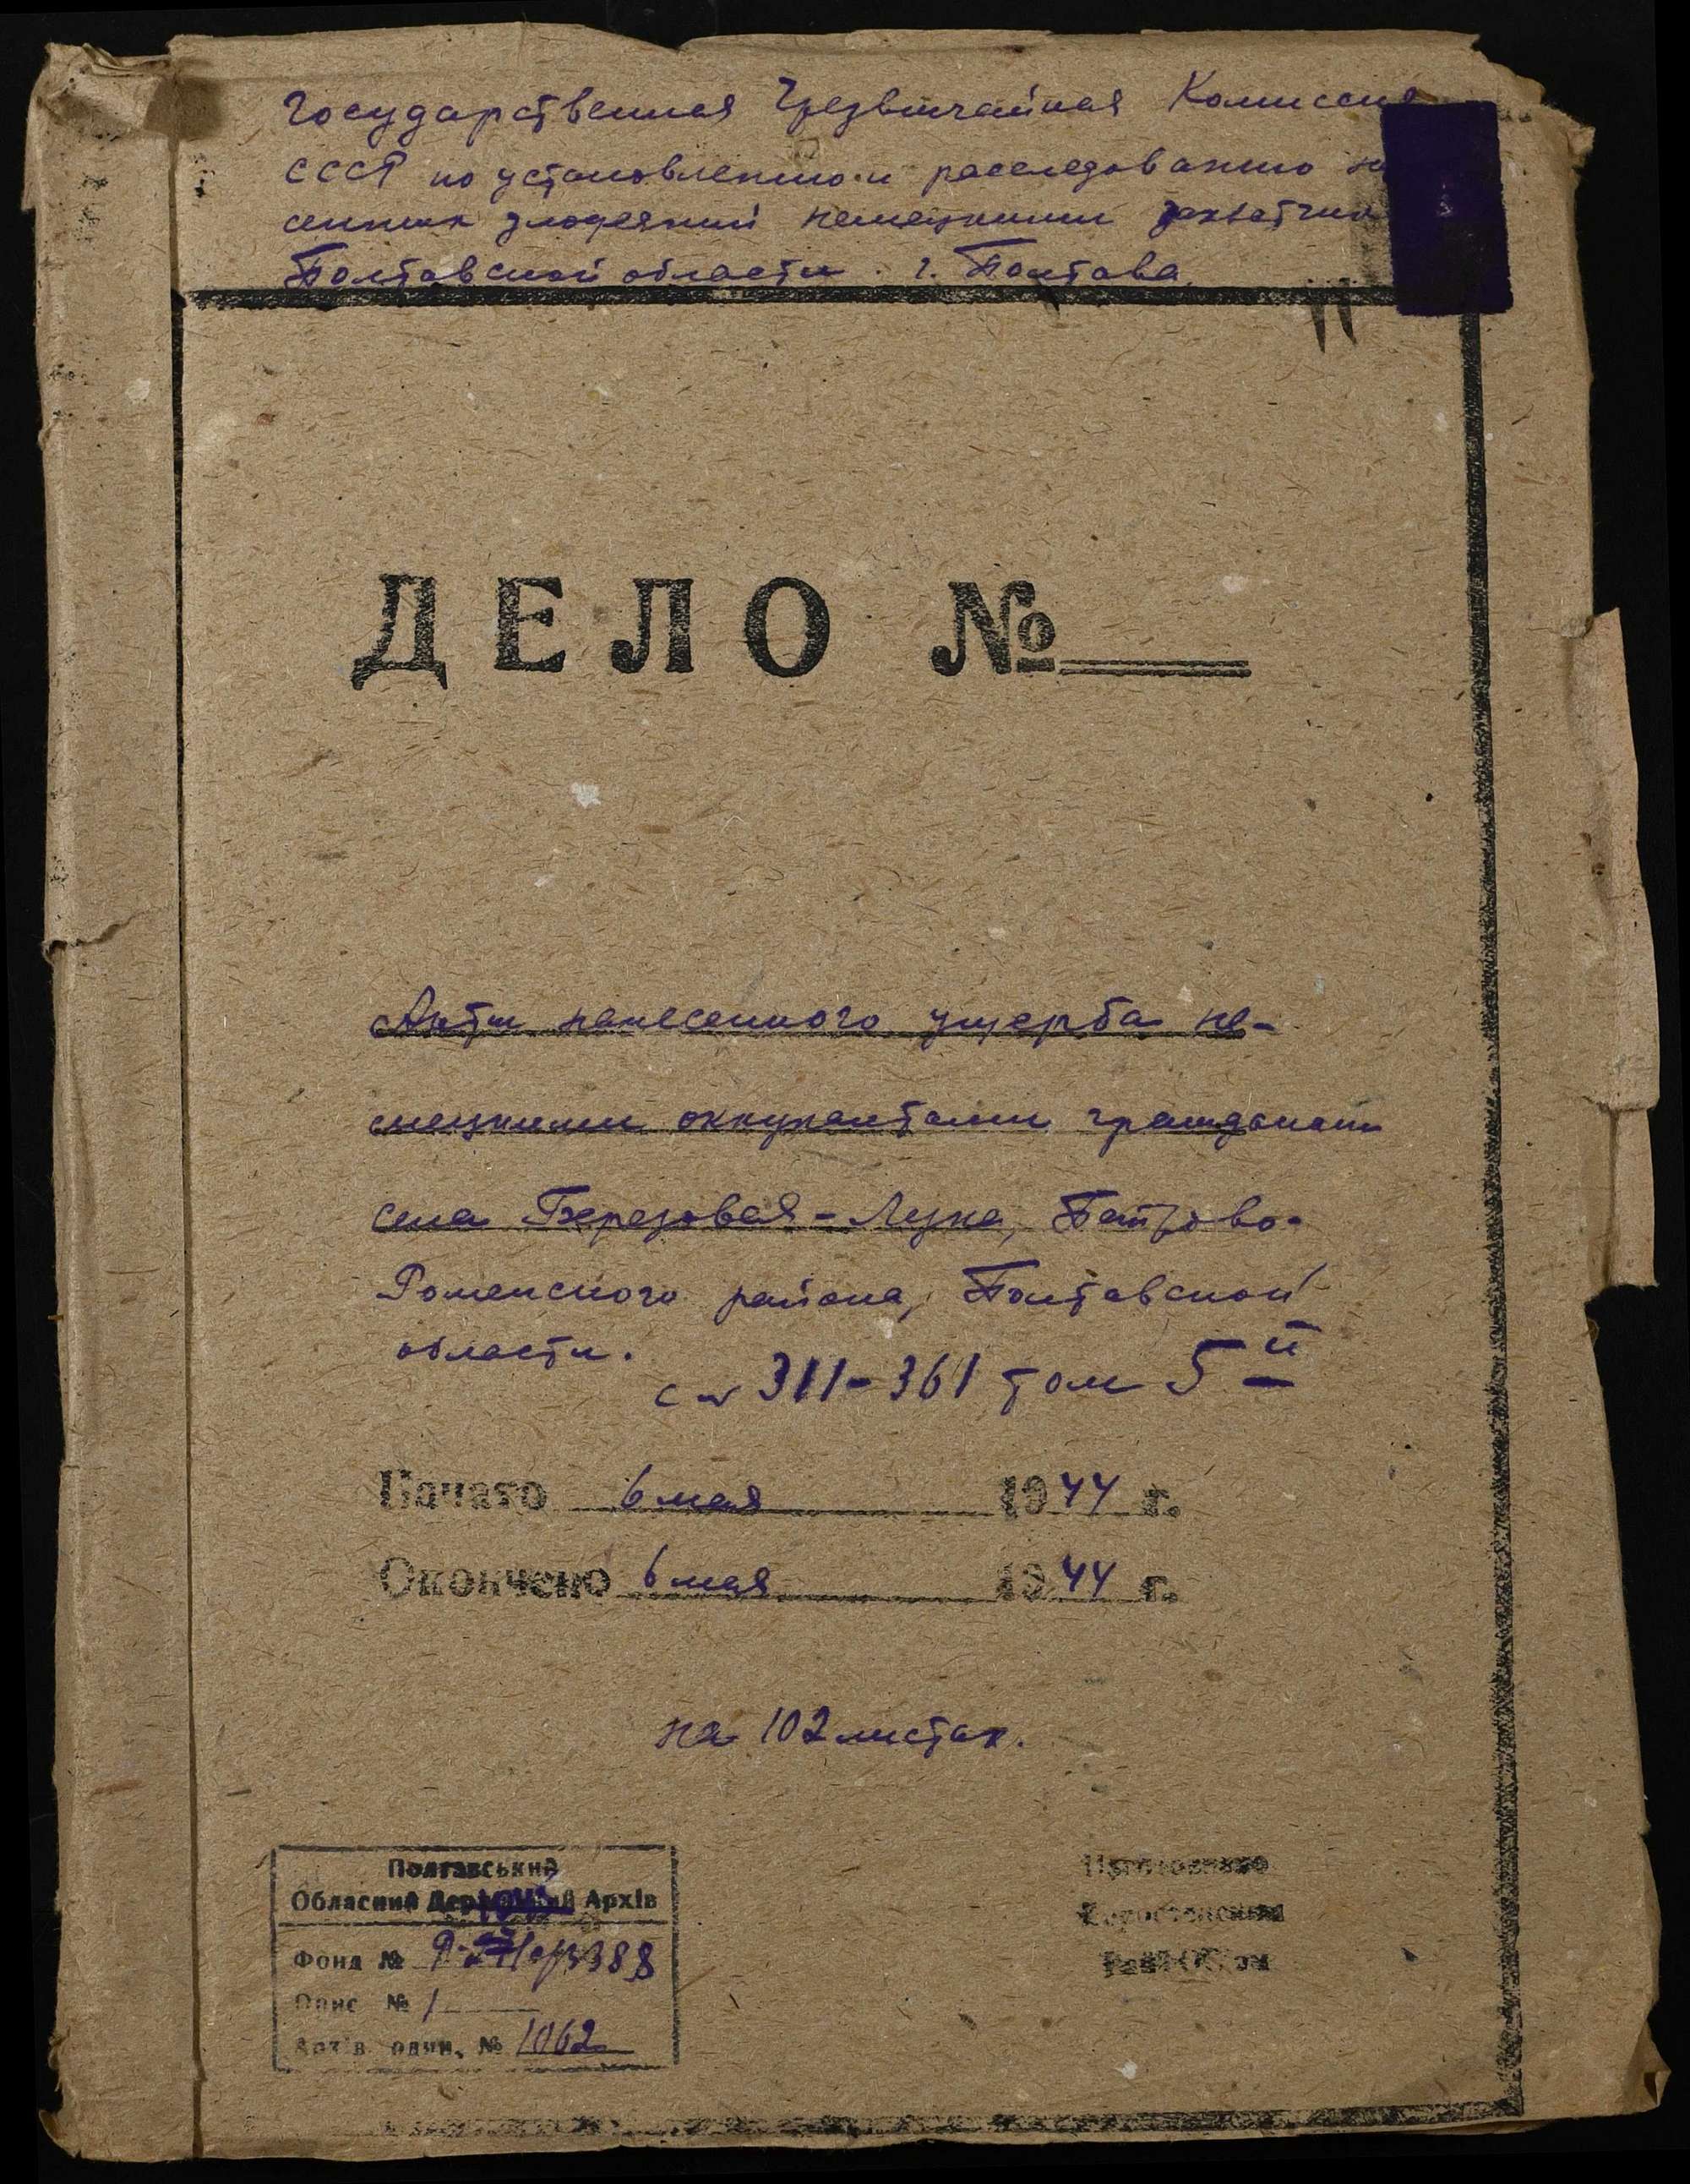 Государственная Чрезвычайная Комиссия
СССР по установлению и расследованию на
сенных злодеяний немецкими захватчик
Полтавской области. г. Полтава.
ДЕЛО №
Акты нанесенного ущерба не-
мецкими оккупантами гражданам
села Березовая-Лука, Петрово-
Роменского района, Полтавской
области.
с № 311-361 том 5й
Начато 6 мая 1944 г.
Окончено 6 мая 1944 г.
на 102 листах.
Полтавський
Обласний Державний Архів
Фонд № 3388
Опис № 1
Архів. один. № 1062